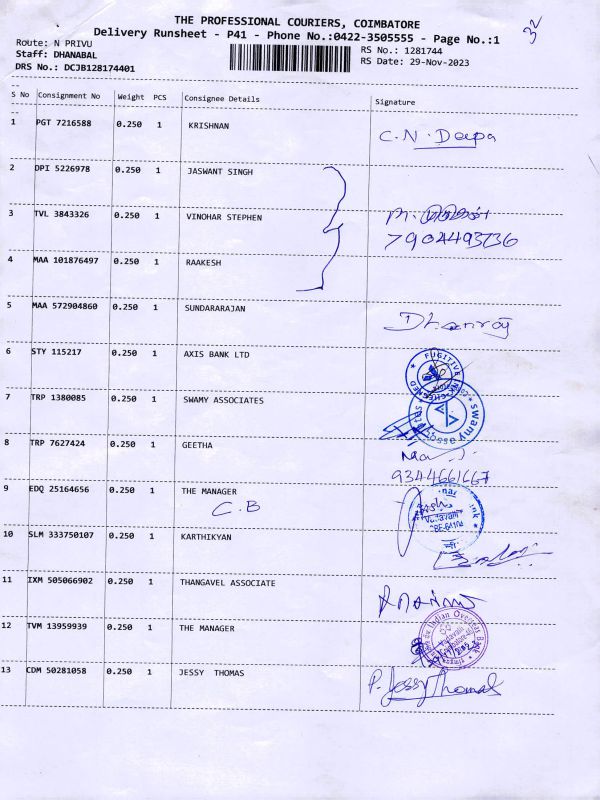 THE PROFESSIONAL COURIERS, COIMBATORE
Delivery Runsheet - P41 - Phone No.:0422-3505555 - Page No.:1
32
Route: N PRIVU
RS No.: 1281744
Staff: DHANABAL
RS Date: 29-Nov-2023
DRS No.: DCJB128174401
S No Consignment No Weight PCS Consignee Details Signature
1 PGT 7216588 0.250 1 KRISHNAN C.N.Deepa
2 DPI 5226978 0.250 1 JASWANT SINGH
3 TVL 3843326 0.250 1 VINOHAR STEPHEN
7904493736
4 MAA 101876497 0.250 1 RAAKESH
5 MAA 572904860 0.250 1 SUNDARARAJAN Dhanraj
6 STY 115217 0.250 1 AXIS BANK LTD
FUGITIVE INK
7 TRP 1380085 0.250 1 SWAMY ASSOCIATES
swamy associates
8 TRP 7627424 0.250 1 GEETHA
9344661667
9 EDQ 25164656 0.250 1 THE MANAGER
C.B
10 SLM 333750107 0.250 1 KARTHIKYAN
11 IXM 505066902 0.250 1 THANGAVEL ASSOCIATE
12 TVM 13959939 0.250 1 THE MANAGER
Indian Overseas Bank
13 CDM 50281058 0.250 1 JESSY THOMAS P. Jessy Thomas